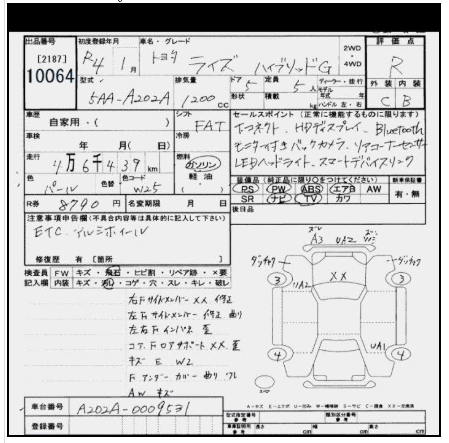 出品番号 初度登録年月 車名・グレード 評価点
[2187] R4年 1月 トヨタ ライズ ハイブリッドG 2WD・4WD R
10064
型式 排気量 ドア 定員 ディーラー・並行 外装 内装
5AA-A202A 1200cc 5 5人 モデル年式 年 C B
形状 積載 kg ハンドル 左・右
車歴 シフト セールスポイント (正常に機能するものに限ります)
自家用・( ) FAT コネクト、HDディスプレイ、Bluetooth
車検 冷房 モニター付きバックカメラ、リアコーナーセンサー
年 月( 日) LEDヘッドライト、スマートデバイスリンク
走行 燃料
4万6千439km ガソリン
軽油
色 色替 色コード 装備品(純正品に限り○をつけてください) 新車保証書
パール W25 PS PW ABS エアB AW 有・無
SR ナビ TV カワ
R券 8790円 名変期限 月 日 後日品
注意事項申告欄(不具合内容等は具体的に記入して下さい)
ETC、アルミホイール
A3 UA2 W2
修復歴 有 [箇所 ]
検査員記入欄 FW キズ・飛石・ヒビ割・リペア跡・X要
内装 キズ・汚レ・コゲ・穴・スレ・キレ・破レ
XX
3 3
UA2
右Fサイドメンバー XX 修正
左Fサイドメンバー 修正 曲り
左右Fインパネ 歪
コア、Fロアサポート XX、歪
キズ E W2
UA1
4 4
Fアンダーカバー 曲り ワレ
AW キズ
車台番号 A202A-0009531
登録番号
型式指定番号 類別区分番号
長さ cm 幅 cm 高さ cm